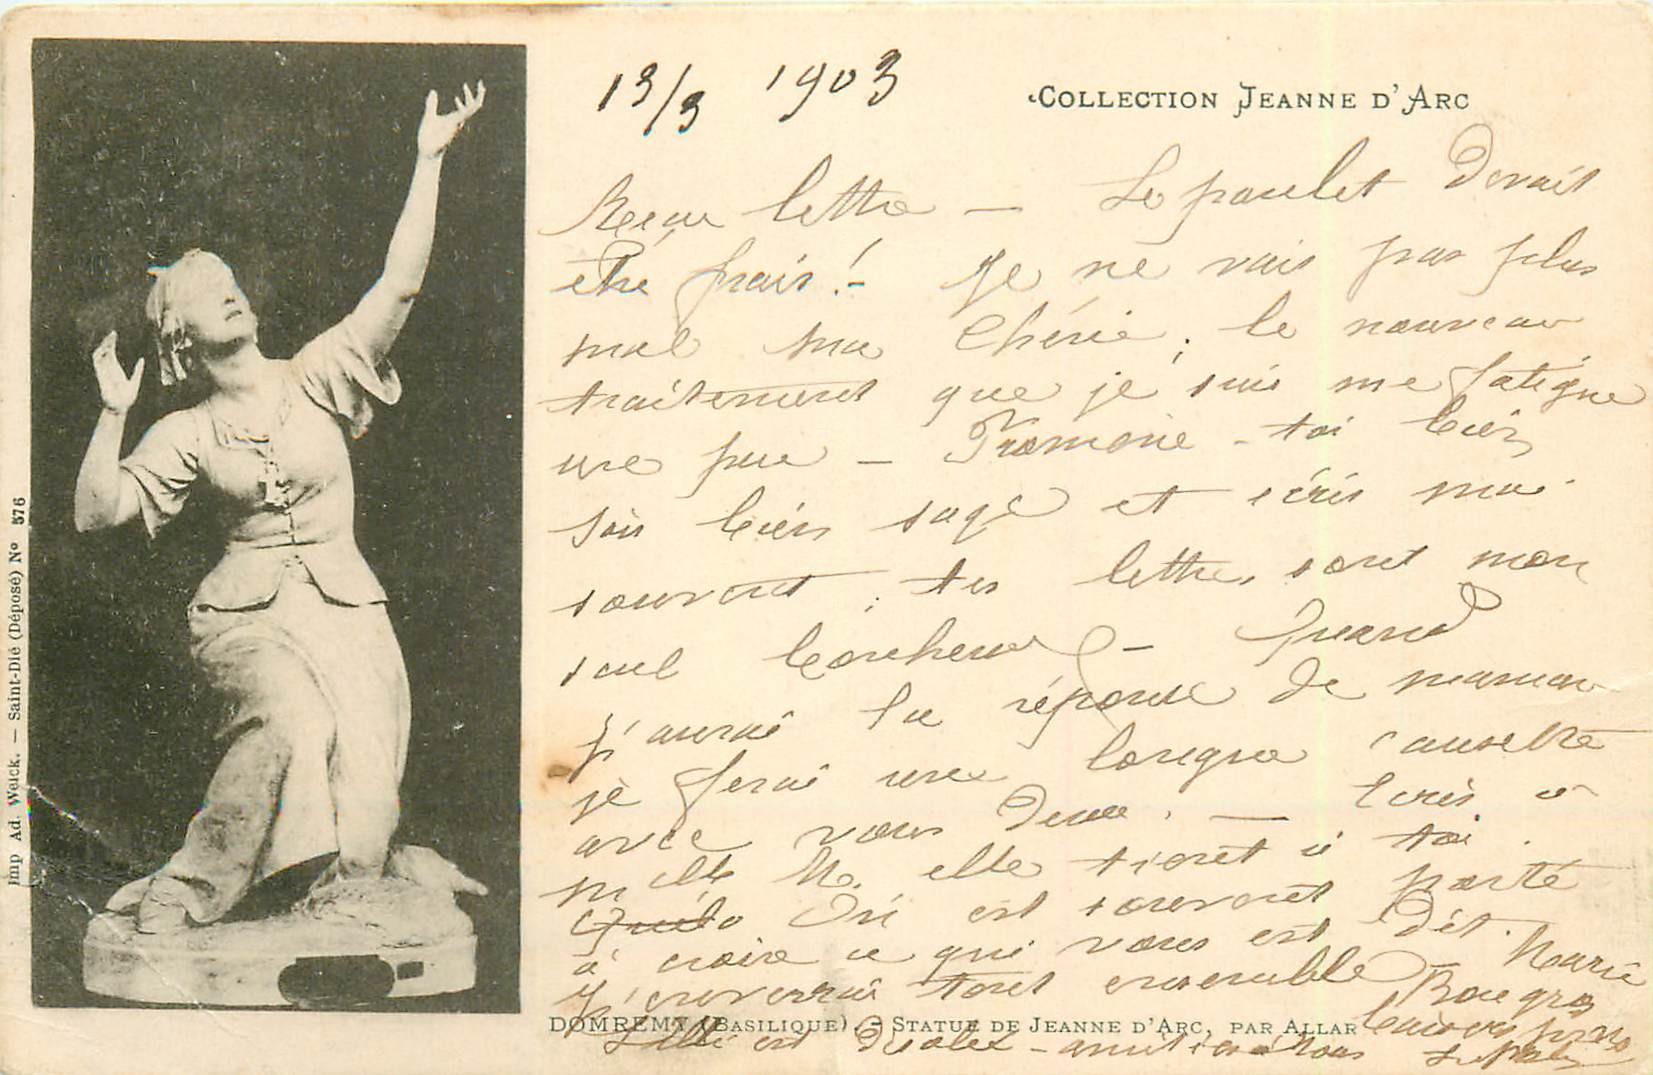 13/3 1903
COLLECTION JEANNE D'ARC
Reçu lettre — Le poulet devait
être frais! — Je ne vais pas plus
mal ma Chérie; le nouveau
traitement que je suis me fatigue
une peu — Promène-toi bien
sois bien sage et écris moi
souvent; tes lettres sont mon
seul bonheur — Quand
j'aurai la réponse de maman
je ferai une longue causette
avec vous deux. — Ecris à
Mlle M. elle tient à toi.
On est souvent porté
à croire ce qui vous est dit.
J'enverrai tout ensemble — Marie
Bon gros
DOMREMY (BASILIQUE) — STATUE DE JEANNE D'ARC, PAR ALLAR
est amitiés à tous
Imp Ad. Weick. — Saint-Dié (Déposé) Nº 576